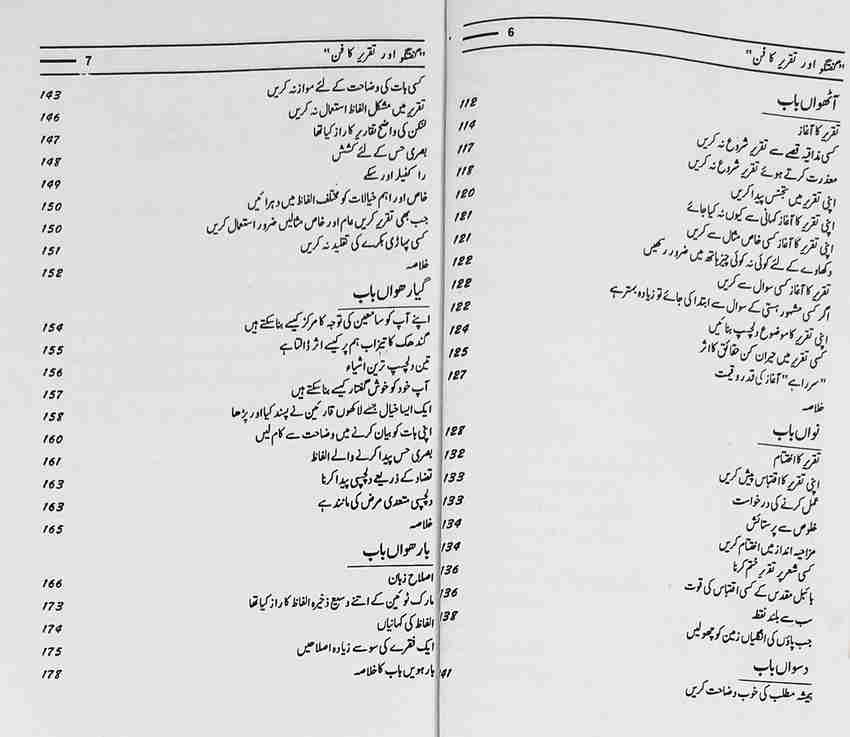 "گفتگو اور تقریر کا فن" 6
آٹھواں باب
تقریر کا آغاز 112
کسی مذاقیہ قصے سے تقریر شروع نہ کریں 114
معذرت کرتے ہوئے تقریر شروع نہ کریں 117
اپنی تقریر میں تجسس پیدا کریں 118
اپنی تقریر کا آغاز کہانی سے کیوں نہ کیا جائے 120
اپنی تقریر کا آغاز کسی خاص مثال سے کریں 121
دکھاوے کے لئے کوئی نہ کوئی چیز ہاتھ میں ضرور رکھیں 121
تقریر کا آغاز کسی سوال سے کریں 122
اگر کسی مشہور ہستی کے سوال سے ابتدا کی جائے تو زیادہ بہتر ہے 122
اپنی تقریر کا موضوع دلچسپ بنائیں 122
کسی تقریر میں حیران کن حقائق کا اثر 124
"سرراہے" آغاز کی قدر و قیمت 125
خلاصہ 127
نواں باب
تقریر کا اختتام 128
اپنی تقریر کا اقتباس پیش کریں 132
عمل کرنے کی درخواست 133
خلوص سے پر ستائش 133
مزاحیہ انداز میں اختتام کریں 134
کسی شعر پر تقریر ختم کرنا 134
بائبل مقدس کے کسی اقتباس کی قوت 136
سب سے بلند نقطہ 136
جب پاؤں کی انگلیاں زمین کو چھولیں 138
دسواں باب
ہمیشہ مطلب کی خوب وضاحت کریں 41
"گفتگو اور تقریر کا فن" 7
کسی بات کی وضاحت کے لئے موازنہ کریں 143
تقریر میں مشکل الفاظ استعمال نہ کریں 146
لنکن کی واضح تقاریر کا راز کیا تھا 147
بصری حس کے لئے کشش 148
راکفیلر اور سکے 149
خاص اور اہم خیالات کو مختلف الفاظ میں دہرائیں 150
جب بھی تقریر کریں عام اور خاص مثالیں ضرور استعمال کریں 150
کسی پہاڑی بکرے کی تقلید نہ کریں 151
خلاصہ 152
گیارھواں باب
اپنے آپ کو سامعین کی توجہ کا مرکز کیسے بنا سکتے ہیں 154
گندھک کا تیزاب ہم پر کیسے اثر ڈالتا ہے 155
تین دلچسپ ترین اشیاء 156
آپ خود کو خوش گفتار کیسے بنا سکتے ہیں 157
ایک ایسا خیال جسے لاکھوں قارئین نے پسند کیا اور پڑھا 158
اپنی بات کو بیان کرنے میں وضاحت سے کام لیں 160
بصری حس پیدا کرنے والے الفاظ 161
تضاد کے ذریعے دلچسپی پیدا کرنا 163
دلچسپی متعدی مرض کی مانند ہے 163
خلاصہ 165
بارھواں باب
اصلاح زبان 166
مارک ٹوئین کے اتنے وسیع ذخیرہ الفاظ کا راز کیا تھا 173
الفاظ کی کہانیاں 174
ایک فقرے کی سو سے زیادہ اصلاحیں 175
بارہویں باب کا خلاصہ 178